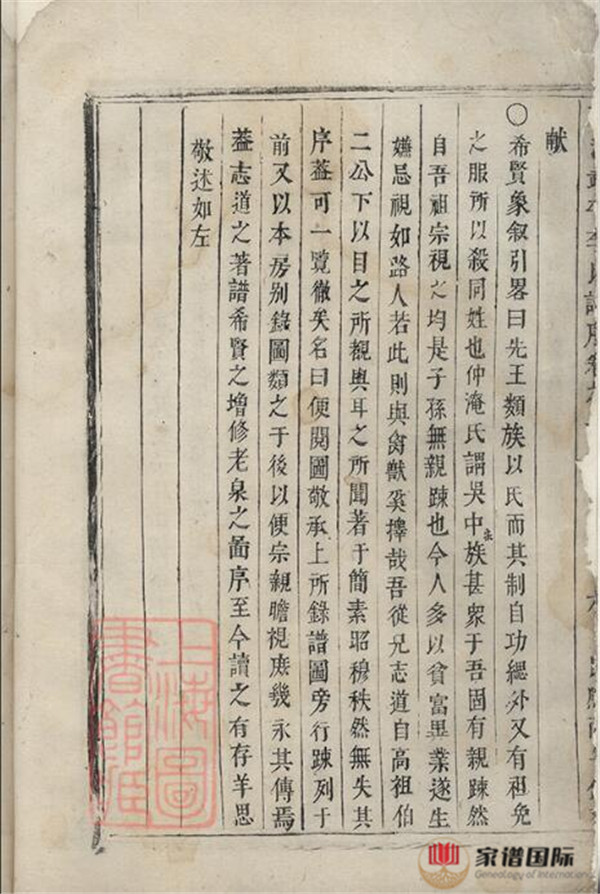 獻
○希賢象叙引畧曰先王類族以氏而其制自功緦外又有袒免
之服所以殺同姓也仲淹氏謂吳中宗族甚衆于吾固有親踈然
自吾祖宗視之均是子孫無親踈也今人多以貧富異業遂生
嫌忌視如路人若此則與禽獸奚擇哉吾從兄志道自高祖伯
二公下以目之所覩與耳之所聞著于簡素昭穆秩然無失其
序葢可一覽徹矣名曰便閱圖敬承上所錄譜圖旁行踈列于
前又以本房别錄圖類之于後以便宗親瞻視庶幾永其傳焉
葢志道之著譜希賢之增修老泉之啚序至今讀之有存羊思
敬述如左
上海圖書館藏
家谱国际
Genealogy of International